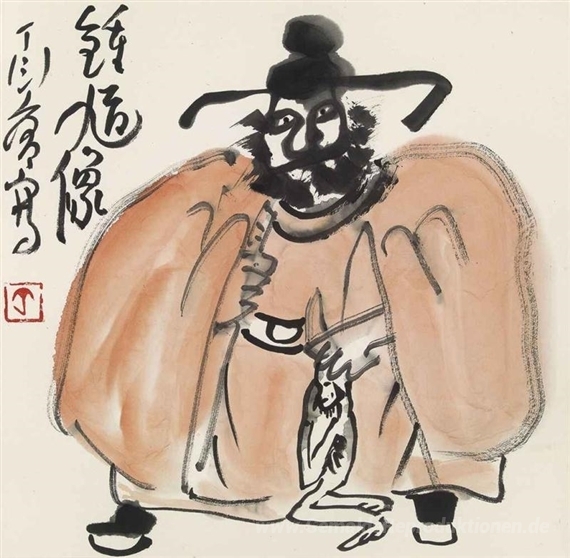 鍾馗像
丁衍庸寫